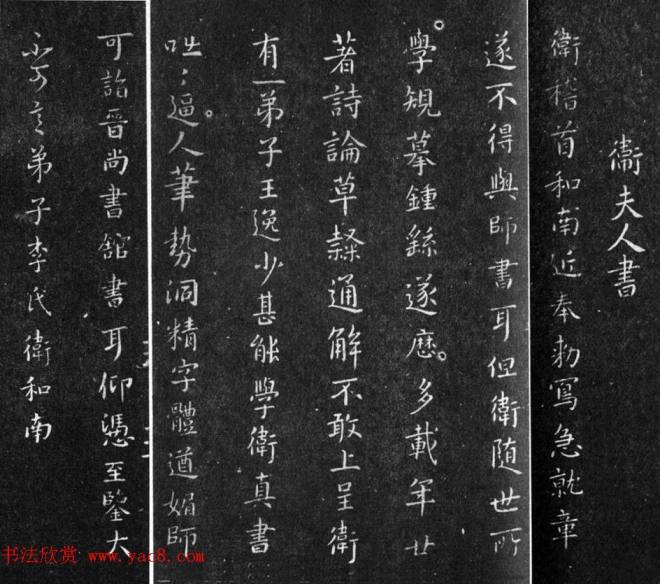 衛夫人書
衛稽首和南近奉勅寫急就章
遂不得與師書耳但衛随世所
學規摹鍾繇遂歷多載年廿
著詩論草隸通解不敢上呈衛
有一弟子王逸少甚能學衛真書
咄〻逼人筆勢洞精字體遒媚師
可詣晉尚書館書耳仰憑至鑒大
不可言弟子李氏衛和南
书法欣赏 www.yac8.com